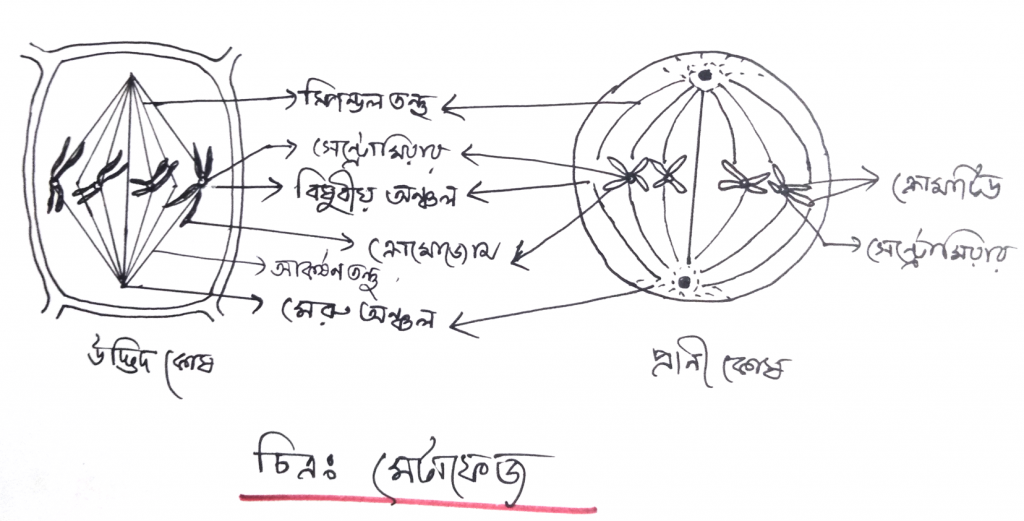 স্পিন্ডল তন্তু
সেন্ট্রোমিয়ার
বিষুবীয় অঞ্চল
ক্রোমোজোম
আকর্ষণ তন্তু
মেরু অঞ্চল
ক্রোমাটিড
সেন্ট্রোমিয়ার
উদ্ভিদ কোষ
প্রানী কোষ
চিত্রঃ মেটাফেজ